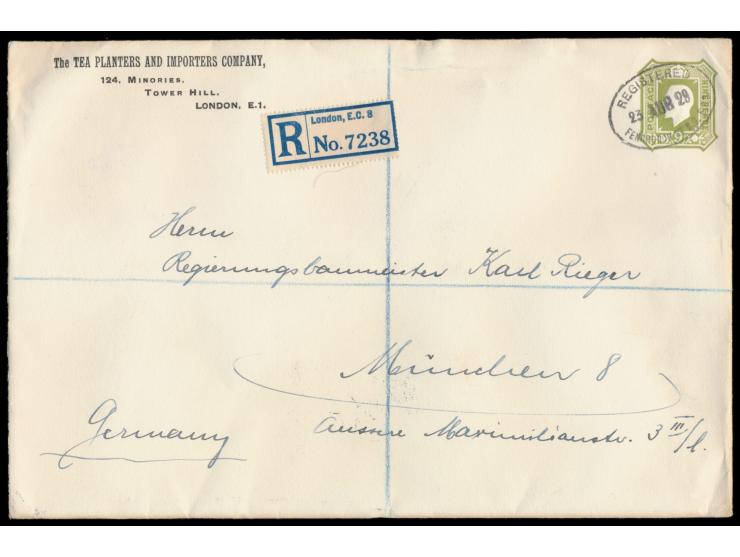 The TEA PLANTERS AND IMPORTERS COMPANY,
124, MINORIES,
TOWER HILL,
LONDON, E.1.
REGISTERED
23 AUG 29
R
London, E.C. 8
No. 7238
Herrn
Regierungsbaumeister Karl Rieger
München 8
Äussere Maximilianstr. 3 III/l.
Germany